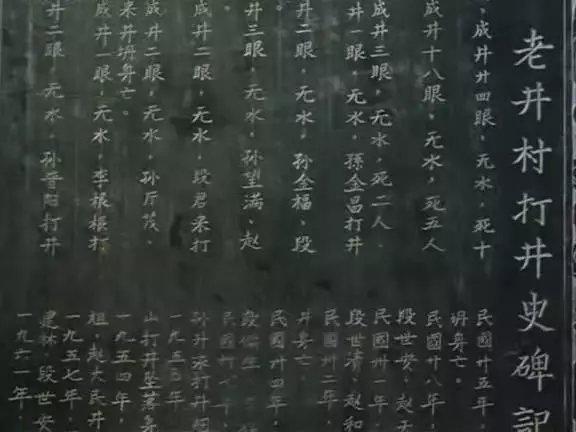 老井村打井史碑記
、成井廿四眼，无水，死十
成井十八眼，无水，死五人
成井三眼，无水，死二人．
井一眼，无水，孫金昌打井
井二眼，无水，孙金福、段
井三眼，无水，孙望满、赵
成井二眼，无水，段君丞打
成井二眼，无水，孙斤茂、
来井坍身亡。
成井一眼，无水，李根根打
井二眼，无水，孙晋阳打井
民國廿五年，
坍身亡。
民國廿八年，
段世安、赵
民國卅一年，
段世清、赵和
民國卅二年，
井身亡。
民國卅四年，
民國卅七年，
孙井丞打井
一九五三年，
山打井坐落身
一九五四年，
祖、赵大民井
一九五七年，
建林、段世安
一九六一年，